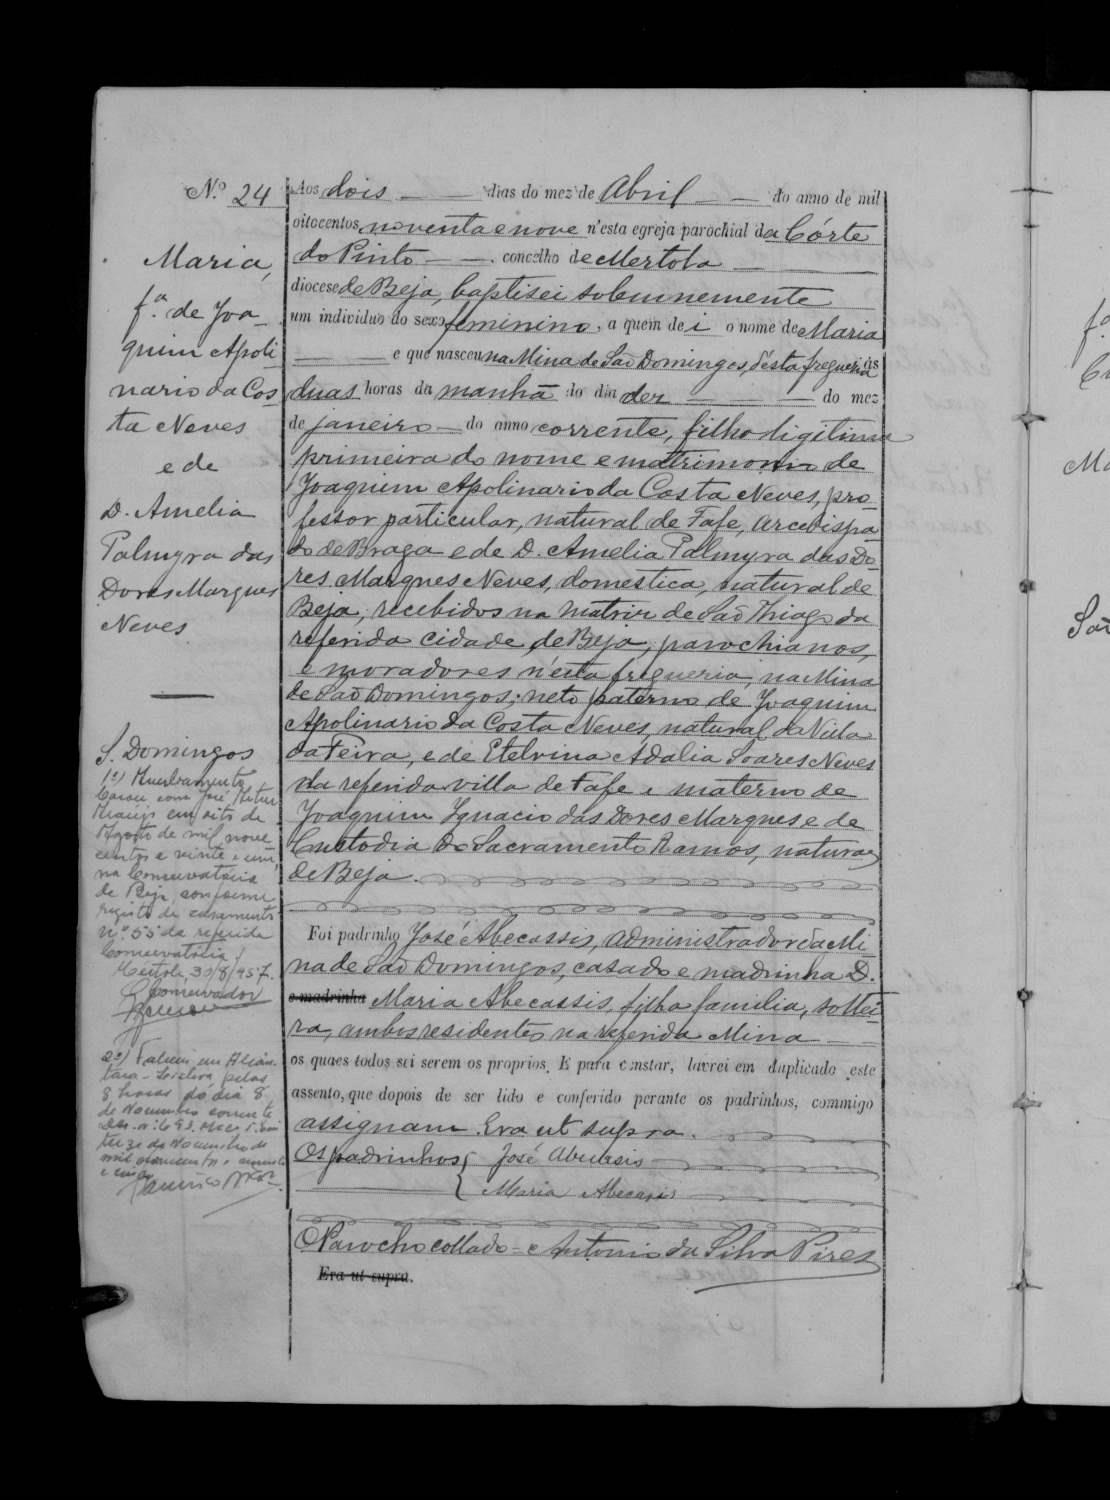 N.º 24
Maria,
f.ª de Joa-
quim Apoli
nario da Cos-
ta Neves
e de
D. Amelia
Palmyra das
Dores Marques
Neves
S. Domingos
1º)
Casou com José Artur
Araujo em oito de
Agosto de mil nove-
centos e vinte e um,
na Conservatória
de Beja, conforme
registo de casamento
nº 55 da referida
Conservatória
Mertola, 30/8/957.
O Conservador
2º) Faleceu em Alcân-
tara-Lisboa pelas
8 horas do dia 8
de Novembro corrente
de Novembro de
mil novecentos
Aos dois dias do mez de Abril do anno de mil
oitocentos noventa e nove n'esta egreja parochial da Córte
do Pinto, concelho de Mertola
diocese de Beja, baptisei solemnemente
um individuo do sexo feminino, a quem dei o nome de Maria
e que nasceu na Mina de São Domingos, d'esta freguezia ás
duas horas da manhã do dia dez do mez
de janeiro do anno corrente, filho ligitima
primeira do nome e matrimonio de
Joaquim Apolinario da Costa Neves, pro-
fessor particular, natural de Fafe, arcebispa
do de Braga e de D. Amelia Palmyra das Do-
res Marques Neves, domestica, natural de
Beja, recebidos na matriz de São Thiago da
referida cidade, de Beja, parochianos,
e moradores n'esta freguezia, na Mina
de São Domingos; neto paterno de Joaquim
Apolinario da Costa Neves, natural da Villa
da Feira, e de Etelvina Adalia Soares Neves
da referida villa de Fafe e materno de
Joaquim Ignacio das Dores Marques e de
Custodia do Sacramento Ramos, naturaes
de Beja.
Foi padrinho José Abecassis, administrador da Mi
na de São Domingos, casado e madrinha D.
e madrinha Maria Abecassis, filha familia, soltei-
ra, ambos residentes na referida Mina
os quaes todos sei serem os proprios. E para constar, lavrei em duplicado este
assento, que depois de ser lido e conferido perante os padrinhos, commigo
assignam. Era ut supra.
Os padrinhos { José Abecassis
{ Maria Abecassis
O Parocho collado = Antonio da Silva Pires
Era ut supra.